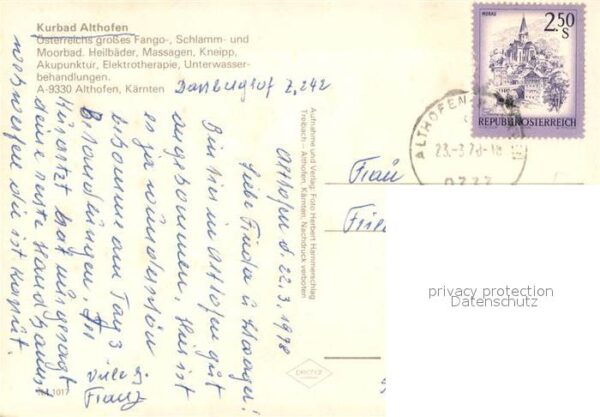 Kurbad Althofen
Österreichs großes Fango-, Schlamm- und
Moorbad. Heilbäder, Massagen, Kneipp,
Akupunktur, Elektrotherapie, Unterwasser-
behandlungen.
A-9330 Althofen, Kärnten
Z. 242
Althofen d. 22.3.1978
Liebe Frieda u
Bin hier in Althofen gut
angekommen, hier ist
es ja wunderschön
bekomme am Tag 3
Behandlungen.
Kurarzt hat mir gesagt
deine rechte Hand
die ist kaputt.
Viele G.
Franz
Aufnahme und Verlag: Foto Herbert Hammerschlag
Treibach - Althofen, Kärnten. Nachdruck verboten
Frau
MURAU
2.50
S
REPUBLIK ÖSTERREICH
ALTHOFEN
23.-3.78-18
privacy protection
Datenschutz
1017